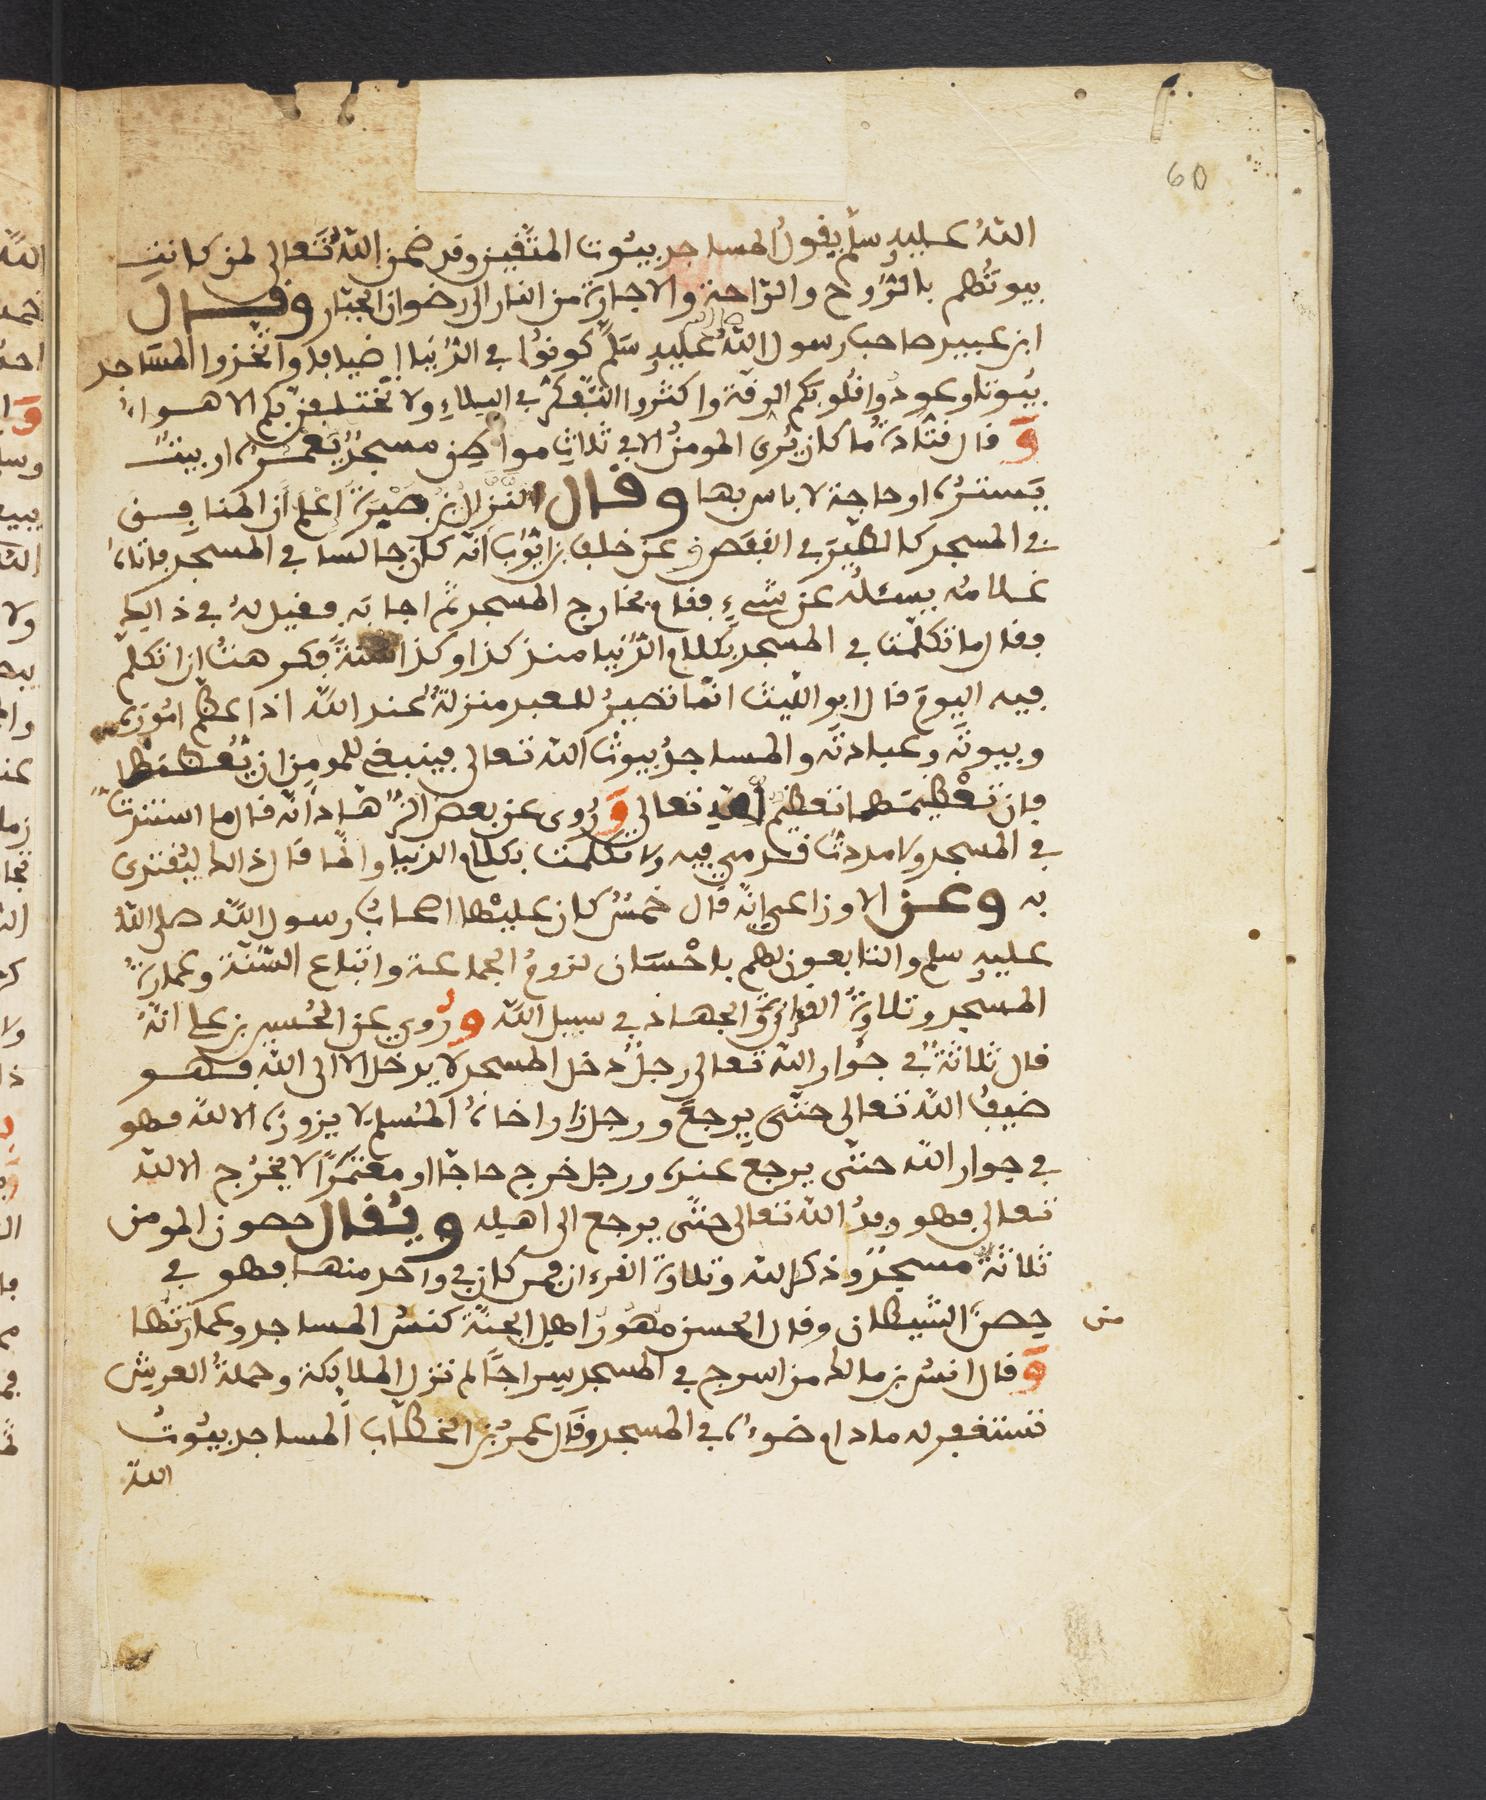 60
الله عليه وسلم يقول المساجد بيوت المتقين وقد ضمن الله تعالى لمن كانت
بيوتهم بالروح والراحة والاجازة من النار الى رضوان الجبار وقال
ابن عمير صاحب رسول الله عليه وسلم كونوا في الدنيا اضيافا واتخذوا المساجد
بيوتا وعودوا قلوبكم الرقة واكثروا التفكر في البكاء ولا تختلفن بكم الاهواء
و قال قتادة ما كان يرى المومن الا في ثلاث مواطن مسجد يعمره او بيت
يستره او حاجة لا باس بها وقال النزال بن صبرة اعلم ان المنافق
في المسجد كالطير في القفص وعن خلف بن ايوب انه كان جالسا في المسجد فاتاه
غلامه يسئله عن شيء فقام فخارج المسجد ثم اجابه فقيل له في ذالك
فقال ما تكلمت في المسجد بكلام الدنيا منذ كذا وكذا سنة فكرهت ان اتكلم
فيه اليوم قال ابو الليث انما تصير للعبد منزلة عند الله اذا عظم اموره
وبيوته وعبادته والمساجد بيوت الله تعالى فينبغي للمومن ان يعظمها
فان تعظيمها تعظيم لله تعالى و روى عن بعض الزهاد انه قال ما استندت
في المسجد ولا مددت قدمي فيه ولا تكلمت بكلام الدنيا وانما قال ذالك ليقتدى
به وعن الاوزاعي انه قال خمس كان عليها اصحاب رسول الله صلى الله
عليه وسلم والتابعون لهم باحسان لزوم الجماعة واتباع السنة وعمارة
المسجد وتلاوة القرآن والجهاد في سبيل الله و روي عن الحسين بن علي انه
قال ثلاثة في جوار الله تعالى رجل دخل المسجد لا يدخل الا الى الله فهو
ضيف الله تعالى حتى يرجع ورجل زار اخاه المسلم لا يزوره الا لله فهو
في جوار الله حتى يرجع عنده ورجل خرج حاجا او معتمرا لا يخرج الا لله
تعالى فهو وفد الله تعالى حتى يرجع الى اهله ويقال حصون المومن
ثلاثة مسجد وذكر الله وتلاوة القرءان فمن كان في واحد منها فهو في
حصن الشيطان وقال الحسن مهور اهل الجنة كنس المساجد وعمارتها
من
و قال انس بن مالك من اسرج في المسجد سراجا لم تزل الملايكة وحملة العرش
تستغفر له مادام ضوءه في المسجد وقال عمر بن الخطاب المساجد بيوت
الله